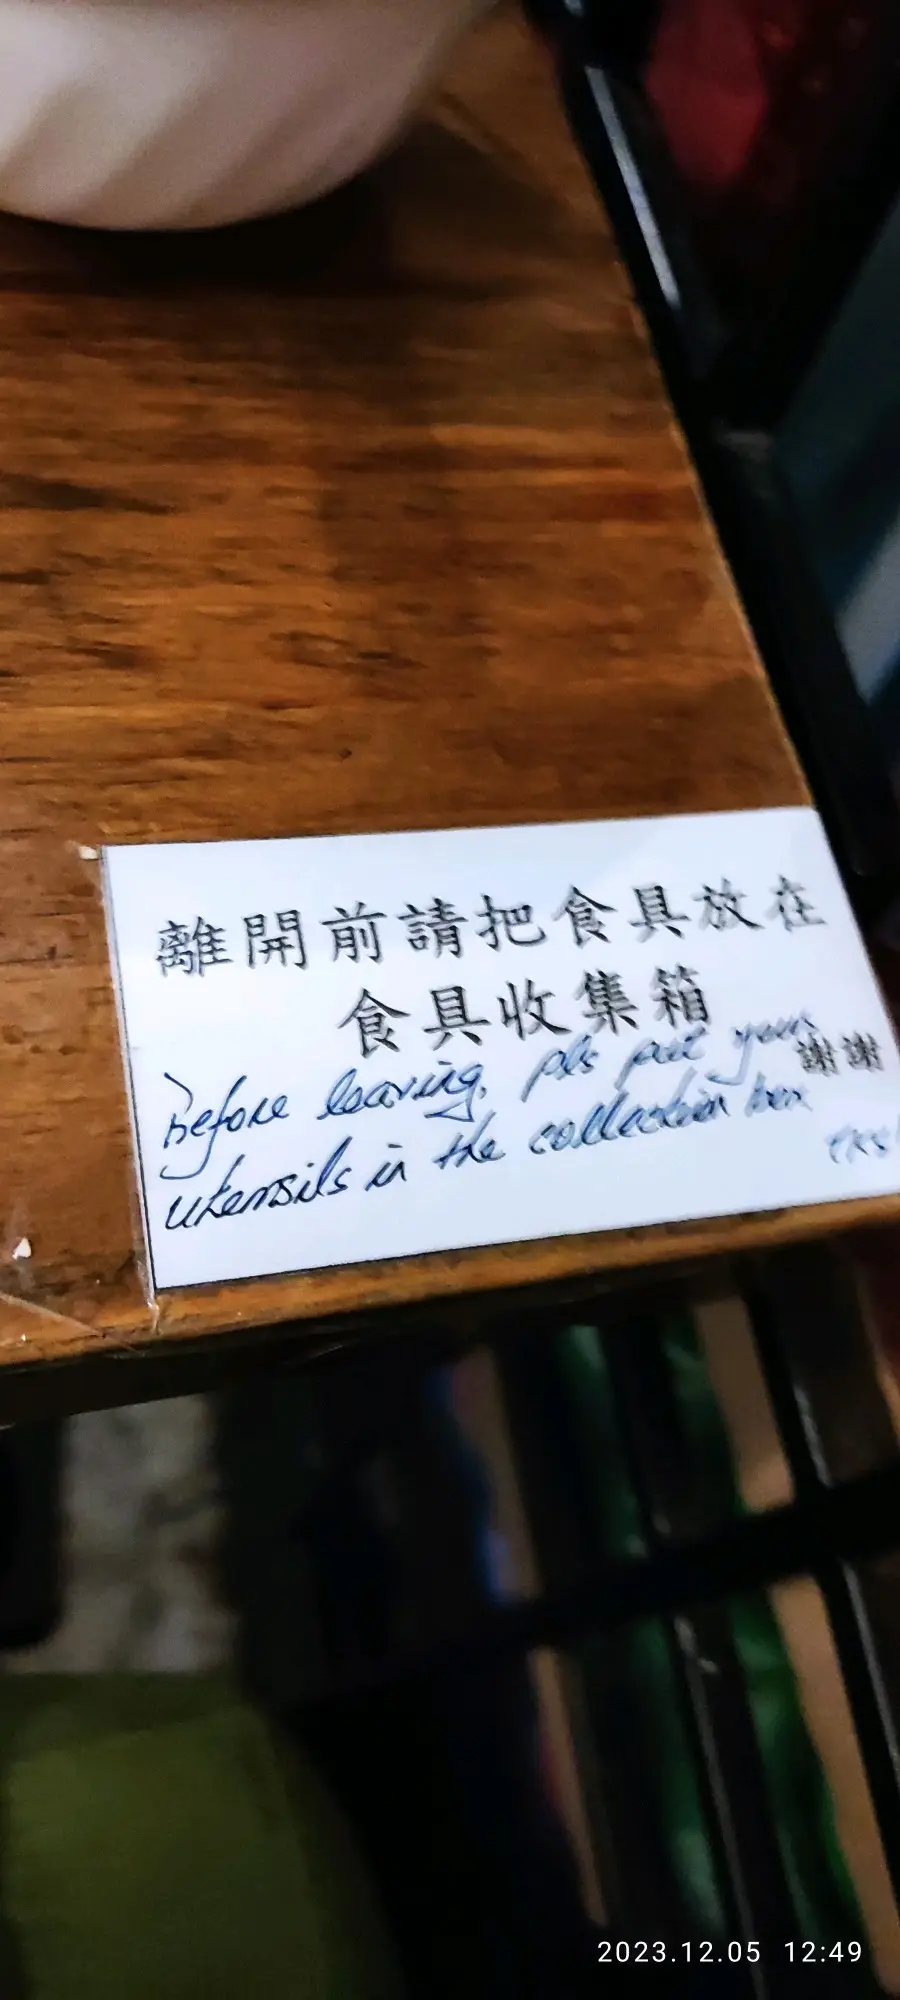 離開前請把食具放在
食具收集箱
謝謝
Before leaving, pls put your
utensils in the collection box
tks!
2023.12.05 12:49